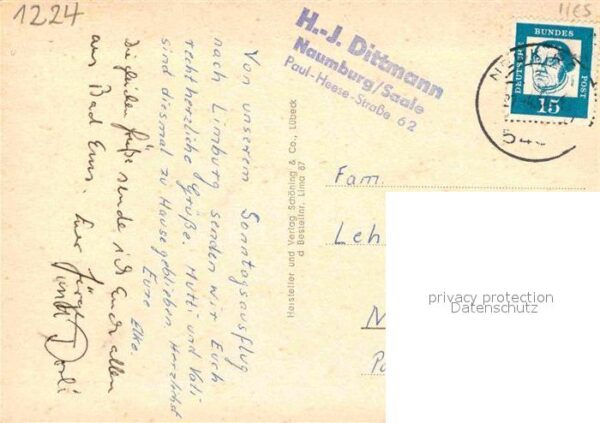 1224
11€S
H.-J. Dittmann
Naumburg/Saale
Paul-Heese-Straße 62
DEUTSCHE
BUNDES
POST
15
Von unserem Sonntagsausflug
nach Limburg senden wir Euch
recht herzliche Grüße. Mutti und Vati
sind diesmal zu Hause geblieben. Herzlichst
Eure Elke.
Die gleichen Grüße sende ich Euch allen
aus Bad Ems. Euer Jürgen
und Dorli
Hersteller und Verlag Schöning & Co., Lübeck
d Bestellnr. Lima 67
Fam.
Leh
N
Pa
privacy protection
Datenschutz